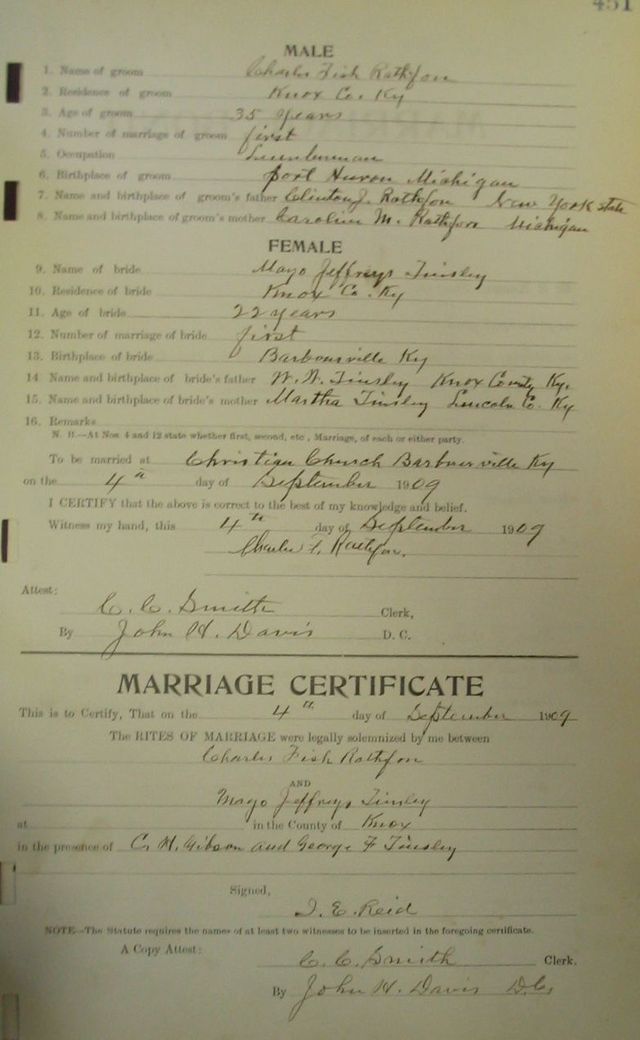 451
MALE
1. Name of groom Charles Fish Rathfon
2. Residence of groom Knox Co. Ky
3. Age of groom 35 years
4. Number of marriage of groom first
5. Occupation Lumberman
6. Birthplace of groom port Huron Michigan
7. Name and birthplace of groom's father Clinton J. Rathfon New York state
8. Name and birthplace of groom's mother Caroline M. Rathfon Michigan
FEMALE
9. Name of bride Mayo Jeffreys Tinsley
10. Residence of bride Knox Co. Ky
11. Age of bride 22 years
12. Number of marriage of bride first
13. Birthplace of bride Barbourville Ky
14 Name and birthplace of bride's father W. W. Tinsley Knox County Ky.
15. Name and birthplace of bride's mother Martha Tinsley Lincoln Co. Ky
16. Remarks
N. B.—At Nos. 4 and 12 state whether first, second, etc, Marriage, of each or either party.
To be married at Christian Church Barbourville Ky
on the 4 day of September 1909
I CERTIFY that the above is correct to the best of my knowledge and belief.
Witness my hand, this 4th day of September 1909
Charles F. Rathfon.
Attest:
C. C. Smith Clerk,
By John H. Davis D. C.
MARRIAGE CERTIFICATE
This is to Certify, That on the 4th day of September 1909
The RITES OF MARRIAGE were legally solemnized by me between
Charles Fish Rathfon
AND
Mayo Jeffreys Tinsley
at in the County of Knox
in the presence of C. H. Gibson and George F Tinsley
Signed,
J. E. Reid
NOTE—The Statute requires the names of at least two witnesses to be inserted in the foregoing certificate.
A Copy Attest:
C. C. Smith Clerk.
By John H. Davis D.C.